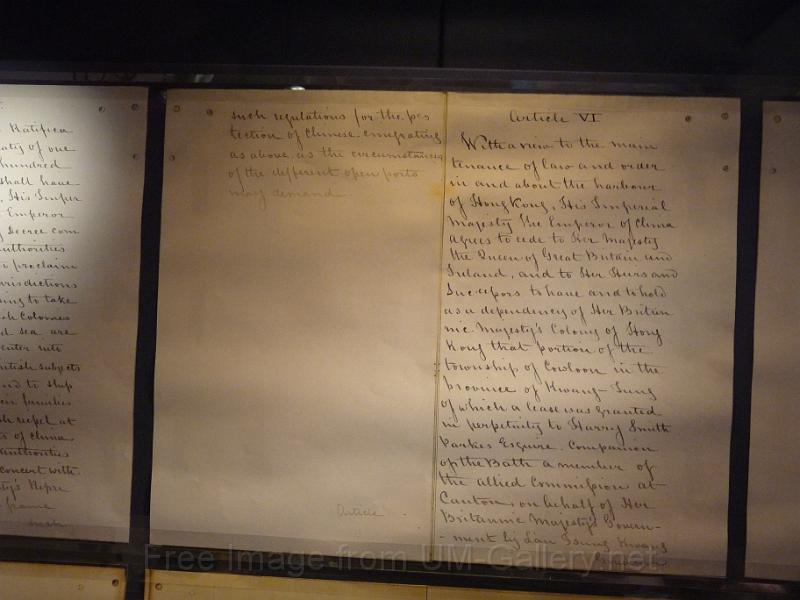 Ratifica
aty of one
hundred
shall have
His Imper
Emperor
Decree com
authorities
proclaim
jurisdictions
ing to take
sh Colonies
d sea are
enter into
British subjects
nd to ship
eir families
sh vessel at
s of China
authorities
concert with
ty's Repre
frame
such
such regulations for the pro
tection of Chinese emigrating
as above, as the circumstances
of the different open ports
may demand
Article
Article VI
With a view to the main
tenance of law and order
in and about the harbour
of Hong Kong, His Imperial
Majesty The Emperor of China
agrees to cede to Her Majesty
the Queen of Great Britain and
Ireland, and to Her Heirs and
Successors to have and to hold
as a dependency of Her Britan
nic Majesty's Colony of Hong
Kong that portion of the
township of Cowloon in the
province of Kwang-Tung
of which a lease was granted
in perpetuity to Harry Smith
Parkes Esquire, Companion
of the Bath a member of
the allied Commission at
Canton, on behalf of Her
Britannic Majesty's Govern-
-ment by Lau Tsung Kwang
Free Image from UM-Gallery.net